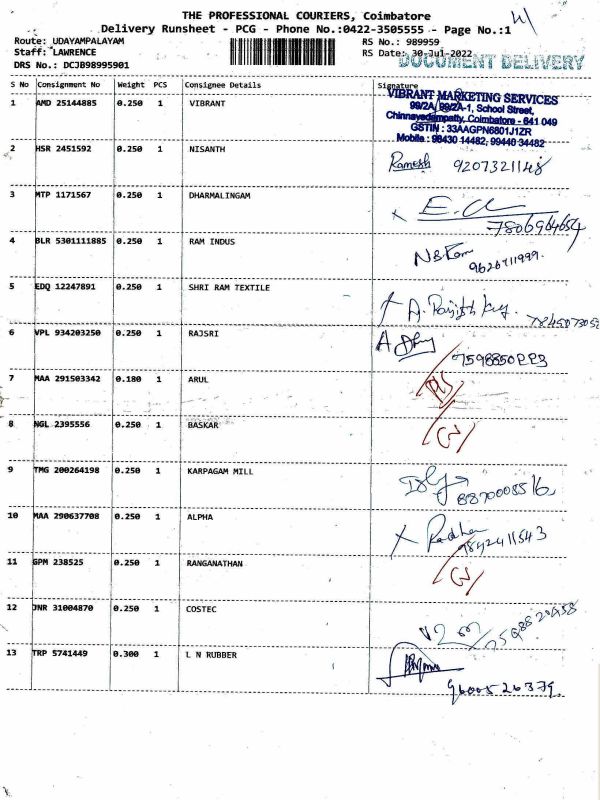 THE PROFESSIONAL COURIERS, Coimbatore
Delivery Runsheet - PCG - Phone No.:0422-3505555 - Page No.:1
Route: UDAYAMPALAYAM RS No.: 989959
Staff: LAWRENCE RS Date: 30-Jul-2022
DRS No.: DCJB98995901 DOCUMENT DELIVERY
S No Consignment No Weight PCS Consignee Details Signature
1 AMD 25144885 0.250 1 VIBRANT
VIBRANT MARKETING SERVICES
99/2A, 99/2A-1, School Street,
Chinnavedampatty, Coimbatore - 641 049
GSTIN : 33AAGPN6801J1ZR
Mobile : 98430 14482, 99440 34482
2 HSR 2451592 0.250 1 NISANTH
Ramesh 9207321148
3 MTP 1171567 0.250 1 DHARMALINGAM
7806964654
4 BLR 5301111885 0.250 1 RAM INDUS
9626711999
5 EDQ 12247891 0.250 1 SHRI RAM TEXTILE
6 VPL 934203250 0.250 1 RAJSRI
7 MAA 291503342 0.180 1 ARUL
8 NGL 2395556 0.250 1 BASKAR
9 TMG 200264198 0.250 1 KARPAGAM MILL
8870008516
10 MAA 290637708 0.250 1 ALPHA
Radha
9842411543
11 GPM 238525 0.250 1 RANGANATHAN
12 JNR 31004870 0.250 1 COSTEC
13 TRP 5741449 0.300 1 L N RUBBER
9600526379.